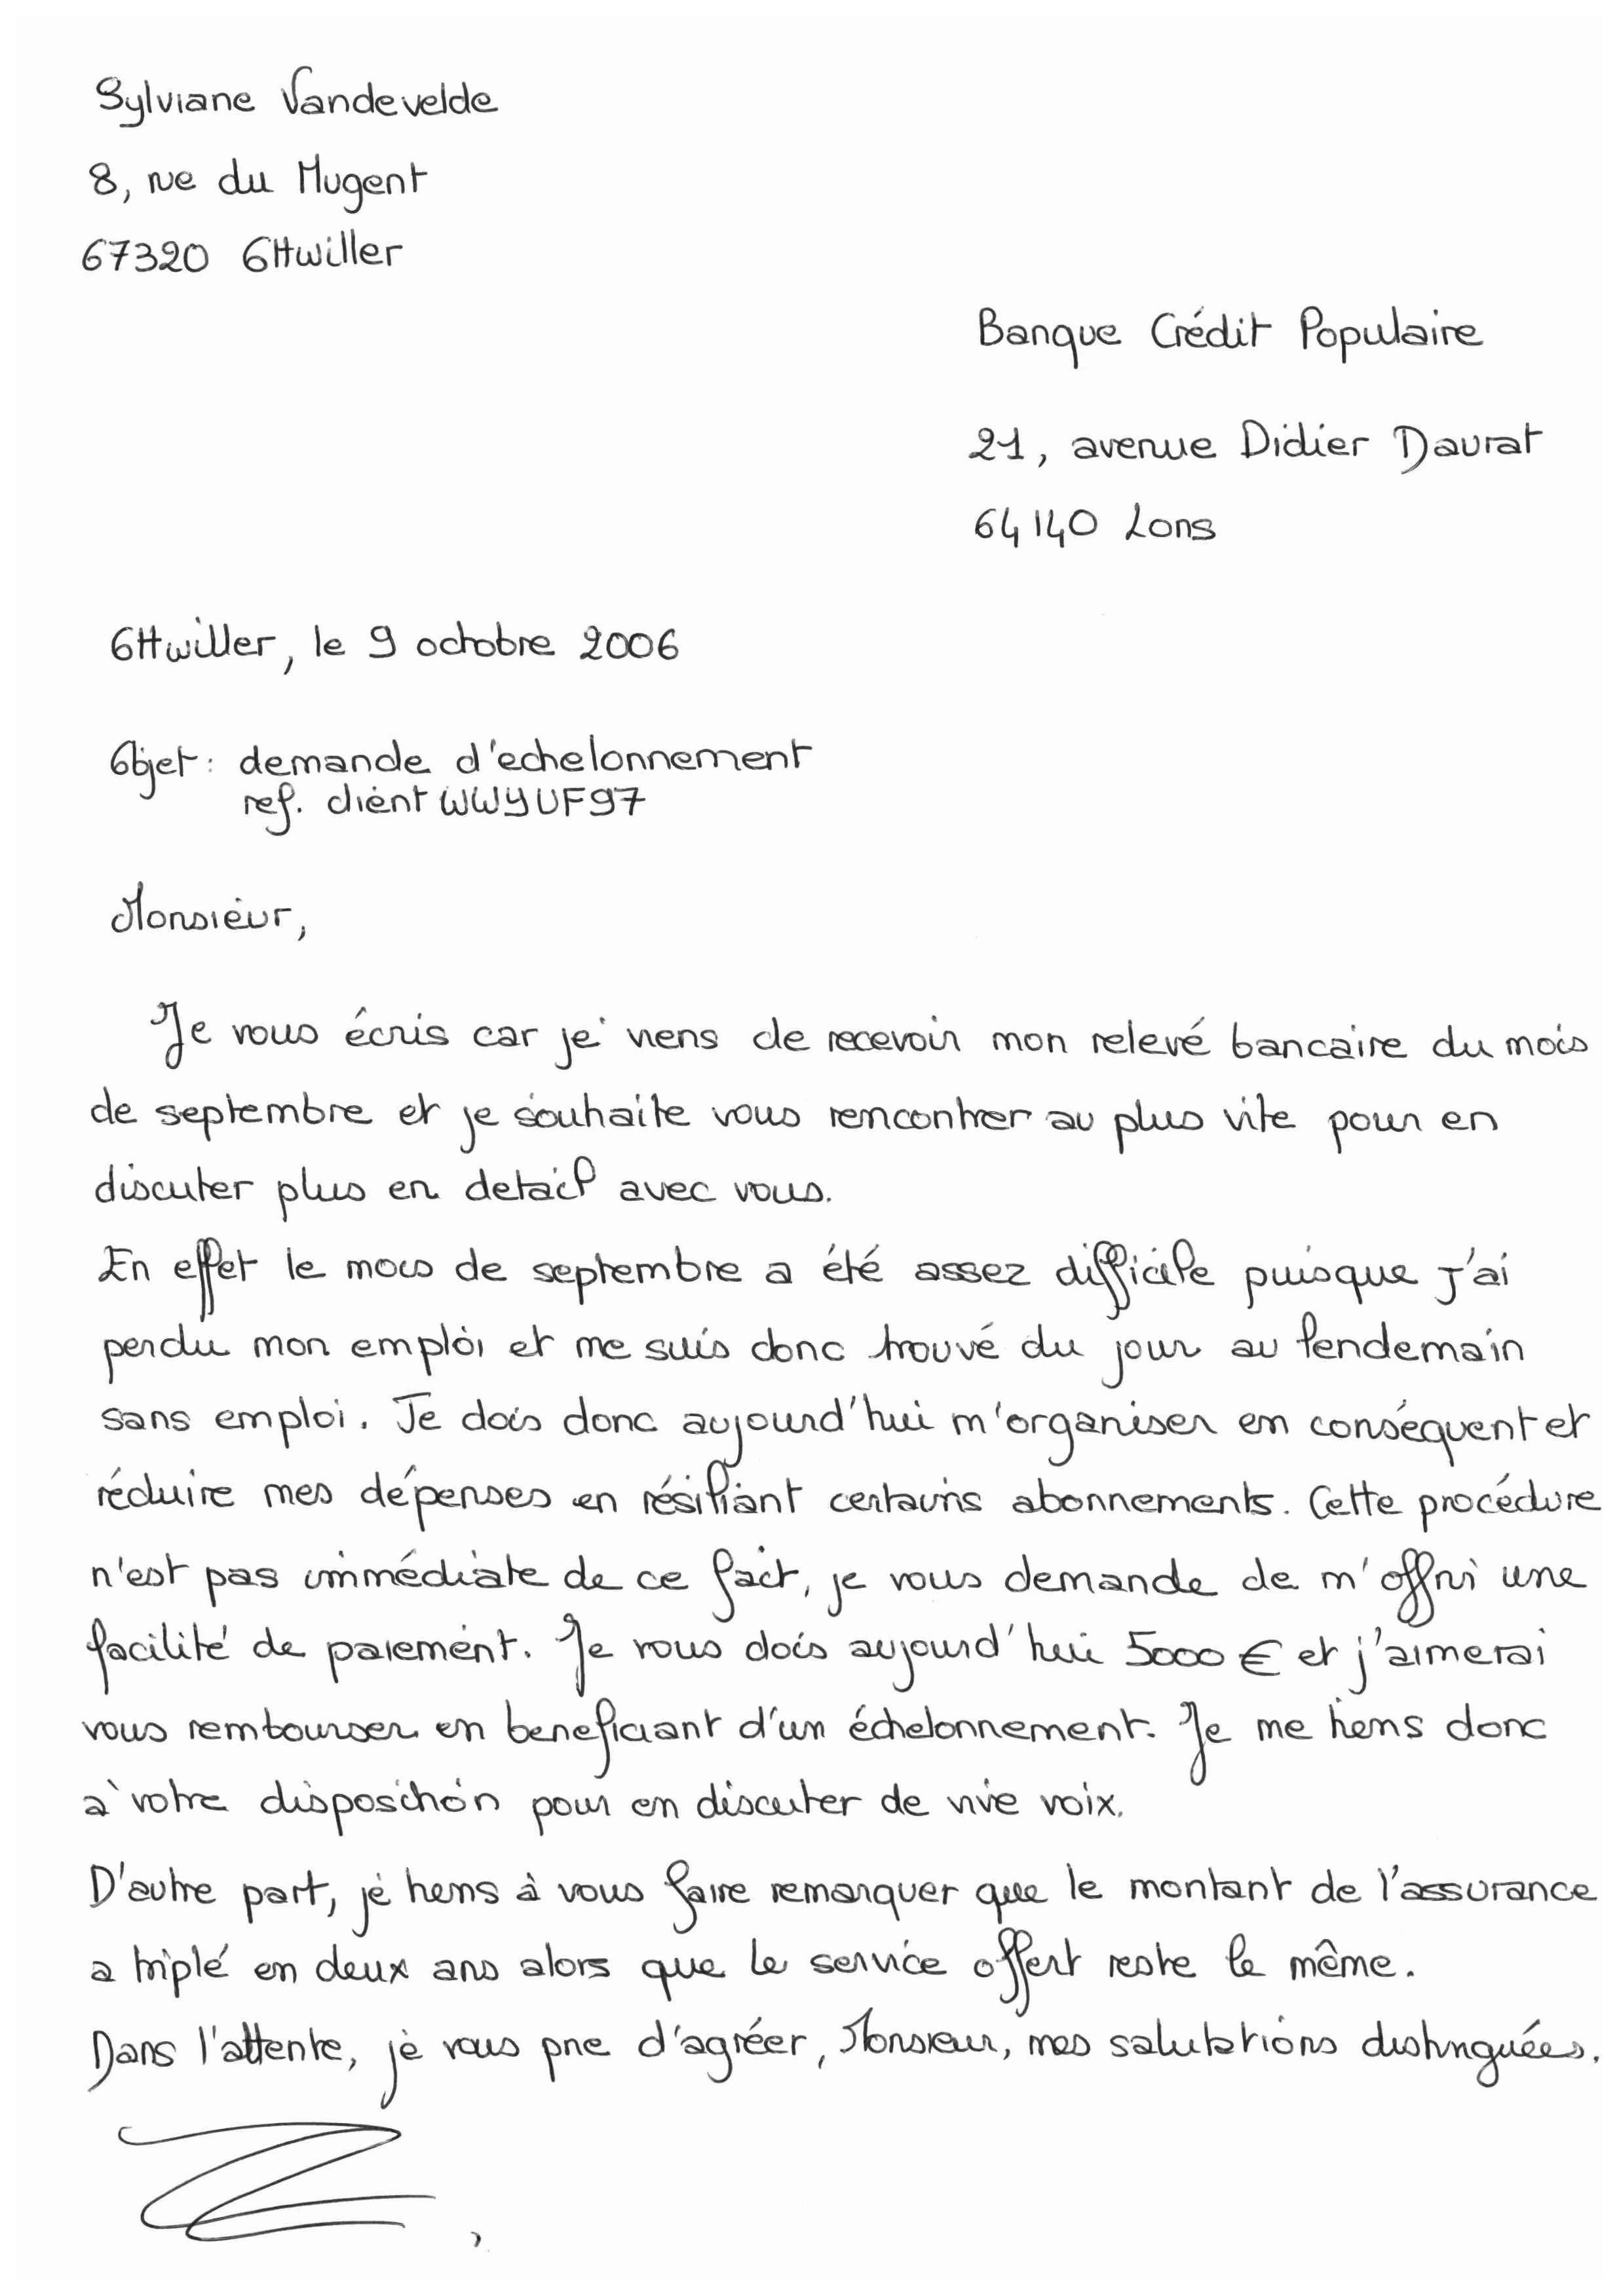 Sylviane Vandevelde
8, rue du Mugent
67320 Ottwiller
Banque Crédit Populaire
21, avenue Didier Daurat
64140 Lons
Ottwiller, le 9 octobre 2006
Objet : demande d'echelonnement
ref. client WWYUF97
Monsieur,
Je vous écris car je viens de recevoir mon relevé bancaire du mois
de septembre et je souhaite vous rencontrer au plus vite pour en
discuter plus en detail avec vous.
En effet le mois de septembre a été assez difficile puisque j'ai
perdu mon emploi et me suis donc trouvé du jour au lendemain
sans emploi. Je dois donc aujourd'hui m'organiser en conséquent et
réduire mes dépenses en résiliant certains abonnements. Cette procédure
n'est pas immédiate de ce fait, je vous demande de m'offrir une
facilité de paiement. Je vous dois aujourd'hui 5000 € et j'aimerai
vous rembourser en beneficiant d'un échelonnement. Je me tiens donc
à votre disposition pour en discuter de vive voix.
D'autre part, je tiens à vous faire remarquer que le montant de l'assurance
a triplé en deux ans alors que le service offert reste le même.
Dans l'attente, je vous prie d'agréer, Monsieur, mes salutations distinguées.